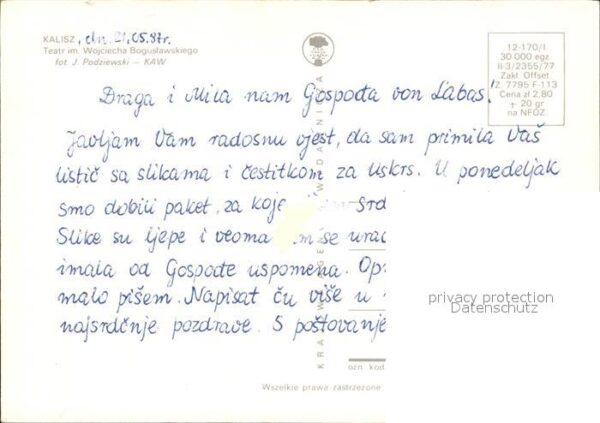 KALISZ, dn. 21.05.87r.
Teatr im. Wojciecha Bogusławskiego
fot J. Podziewski — KAW
12-170/I
30 000 egz
II-3/2355/77
Zakł Offset
Z 7795 F-113
Cena zł 2,80
+ 20 gr
na NFOZ
Draga i Mila nam Gospođa von Labas!
Javljam Vam radosnu vjest, da sam primila Vaš
listić sa slikama i čestitkom za Uskrs. U ponedeljak
smo dobili paket, za koje
Slike su ljepe i veoma mi se
imala od Gospođe uspomena.
malo pišem. Napisat ću više u
najsrdčnje pozdrave. S poštovanje
privacy protection
Datenschutz
ozn kod
Wszelkie prawa zastrzeżone